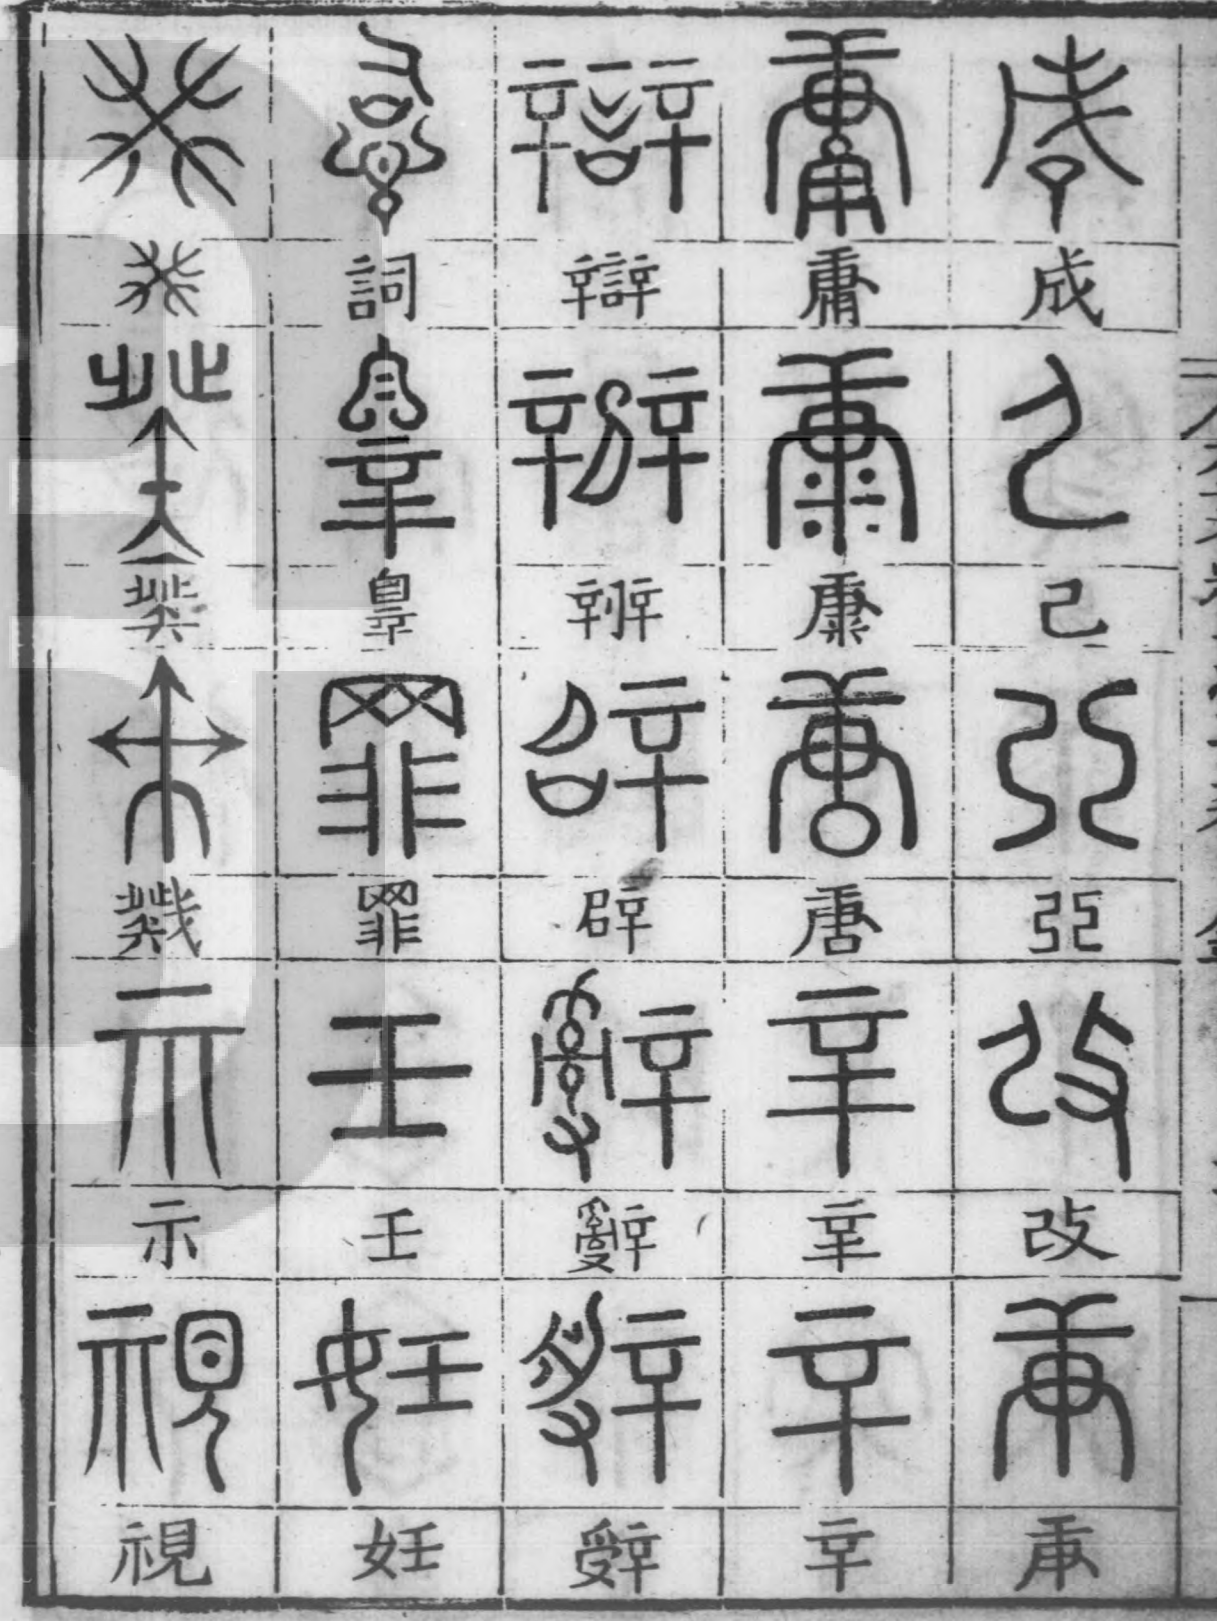 成己亞改庚
庸康唐辛䇂
辯辨辟辭辤
詞辠罪壬妊
癸示視